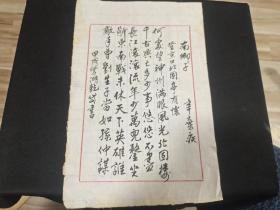 南鄉子
辛棄疾
登京口北固亭有懷
何處望神州滿眼風光北固樓
千古興亡多少事悠悠不盡
長江滾滾流年少萬兜鍪坐
斷東南戰未休天下英雄誰
敵手曹劉生子當如孫仲謀
甲戌 書